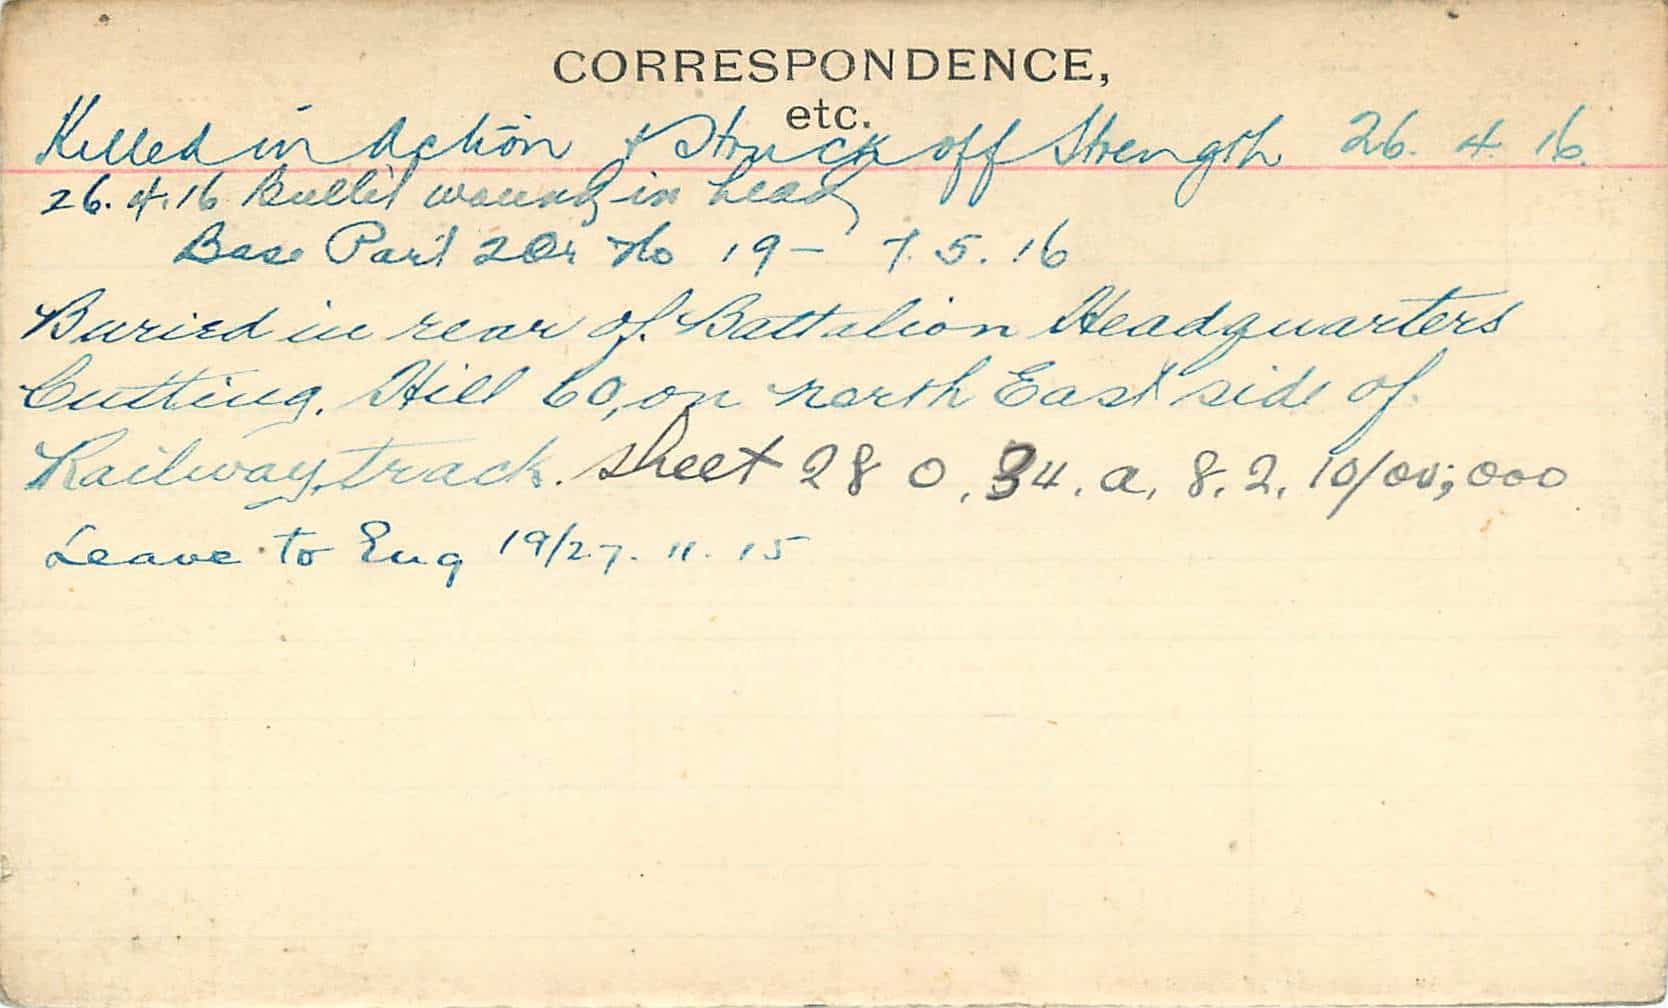 CORRESPONDENCE,
etc.
Killed in Action & Struck off Strength 26. 4. 16.
26. 4. 16 Bullet wound in head
Base Part 2 Or No 19 - 7. 5. 16
Buried in rear of Battalion Headquarters
Cutting, Hill 60, on north East side of
Railway track. Sheet 28 O. 34. a. 8. 2. 10/00;000
Leave to Eng 19/27. 11. 15